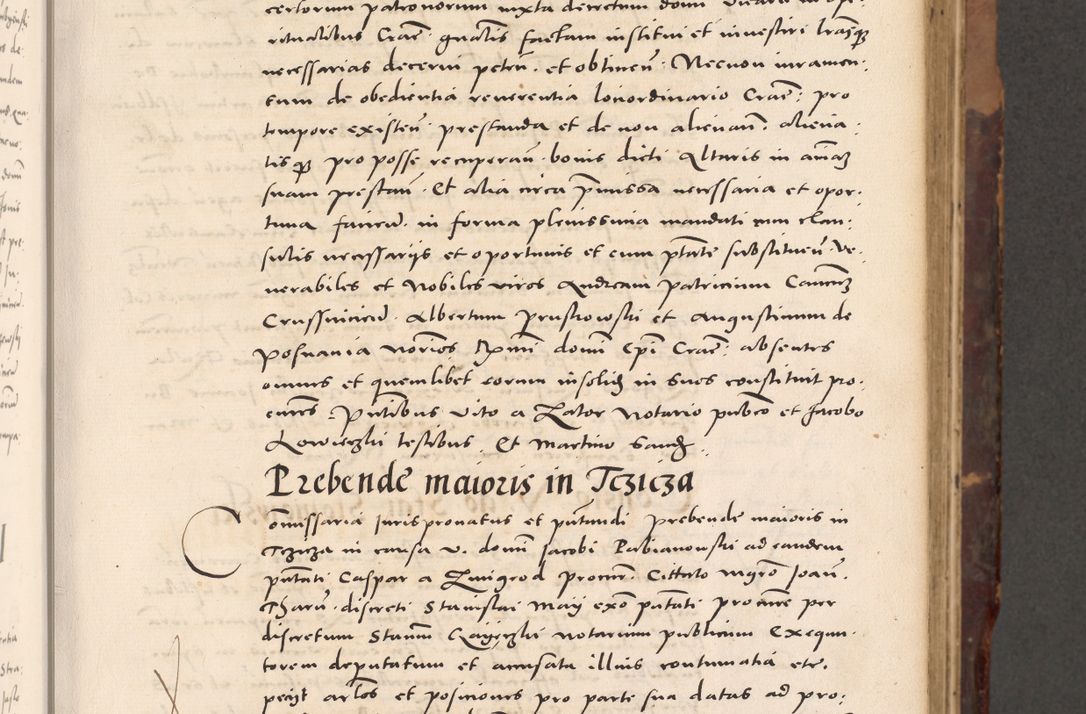 certorum patronorum iuxta decretum domi Vicarii in spi-
ritualibus Crac: gnalis factam institui et investiri lrasq
necessarias decerni petend. et obtinend. Necnon iuramen:
tum de obedientia reverentia loci ordinario Crac: pro
tempore existen. prestanda et de non alienan. aliena:
tisq pro posse recuperan. bonis dicti Altaris in aiam
suam prestan. Et alia circa pmissa necessaria et opor:
tuna faciend. in forma plenissima mandati cum clau:
sulis necessarijs et oportunis et cum ptate substituen Ve:
nerabiles et Nobiles viros Andream patricium Canonicum
Crussvicien. Albertum Prusliowski et Augustinum de
Posnania Norios Rmi domi Epi Crac: absentes
omnes et quemlibet eorum insolid in suos constituit pro:
cures. Pntibus Vito a Zator Notario publico et Jacobo
Lowieczki testibus Et Martino Sand.
Prebende maioris in Tczicza
Commissaria Juris pronatus et pntandi Prebende maioris in
Tczicza in causa v. domi Jacobi Pabianowski ad eandem
pntati Caspar a Zmigrod procur. Citato mgro Joan.
Tharn. discreti Stanislai May exo pntati procure per
discretum Stanm Czayeczki notarium publicum Exequu:
torem deputatum et accusata illius contumatia etc.
pecijt arlos et positiones pro parte sua datas ad pro: